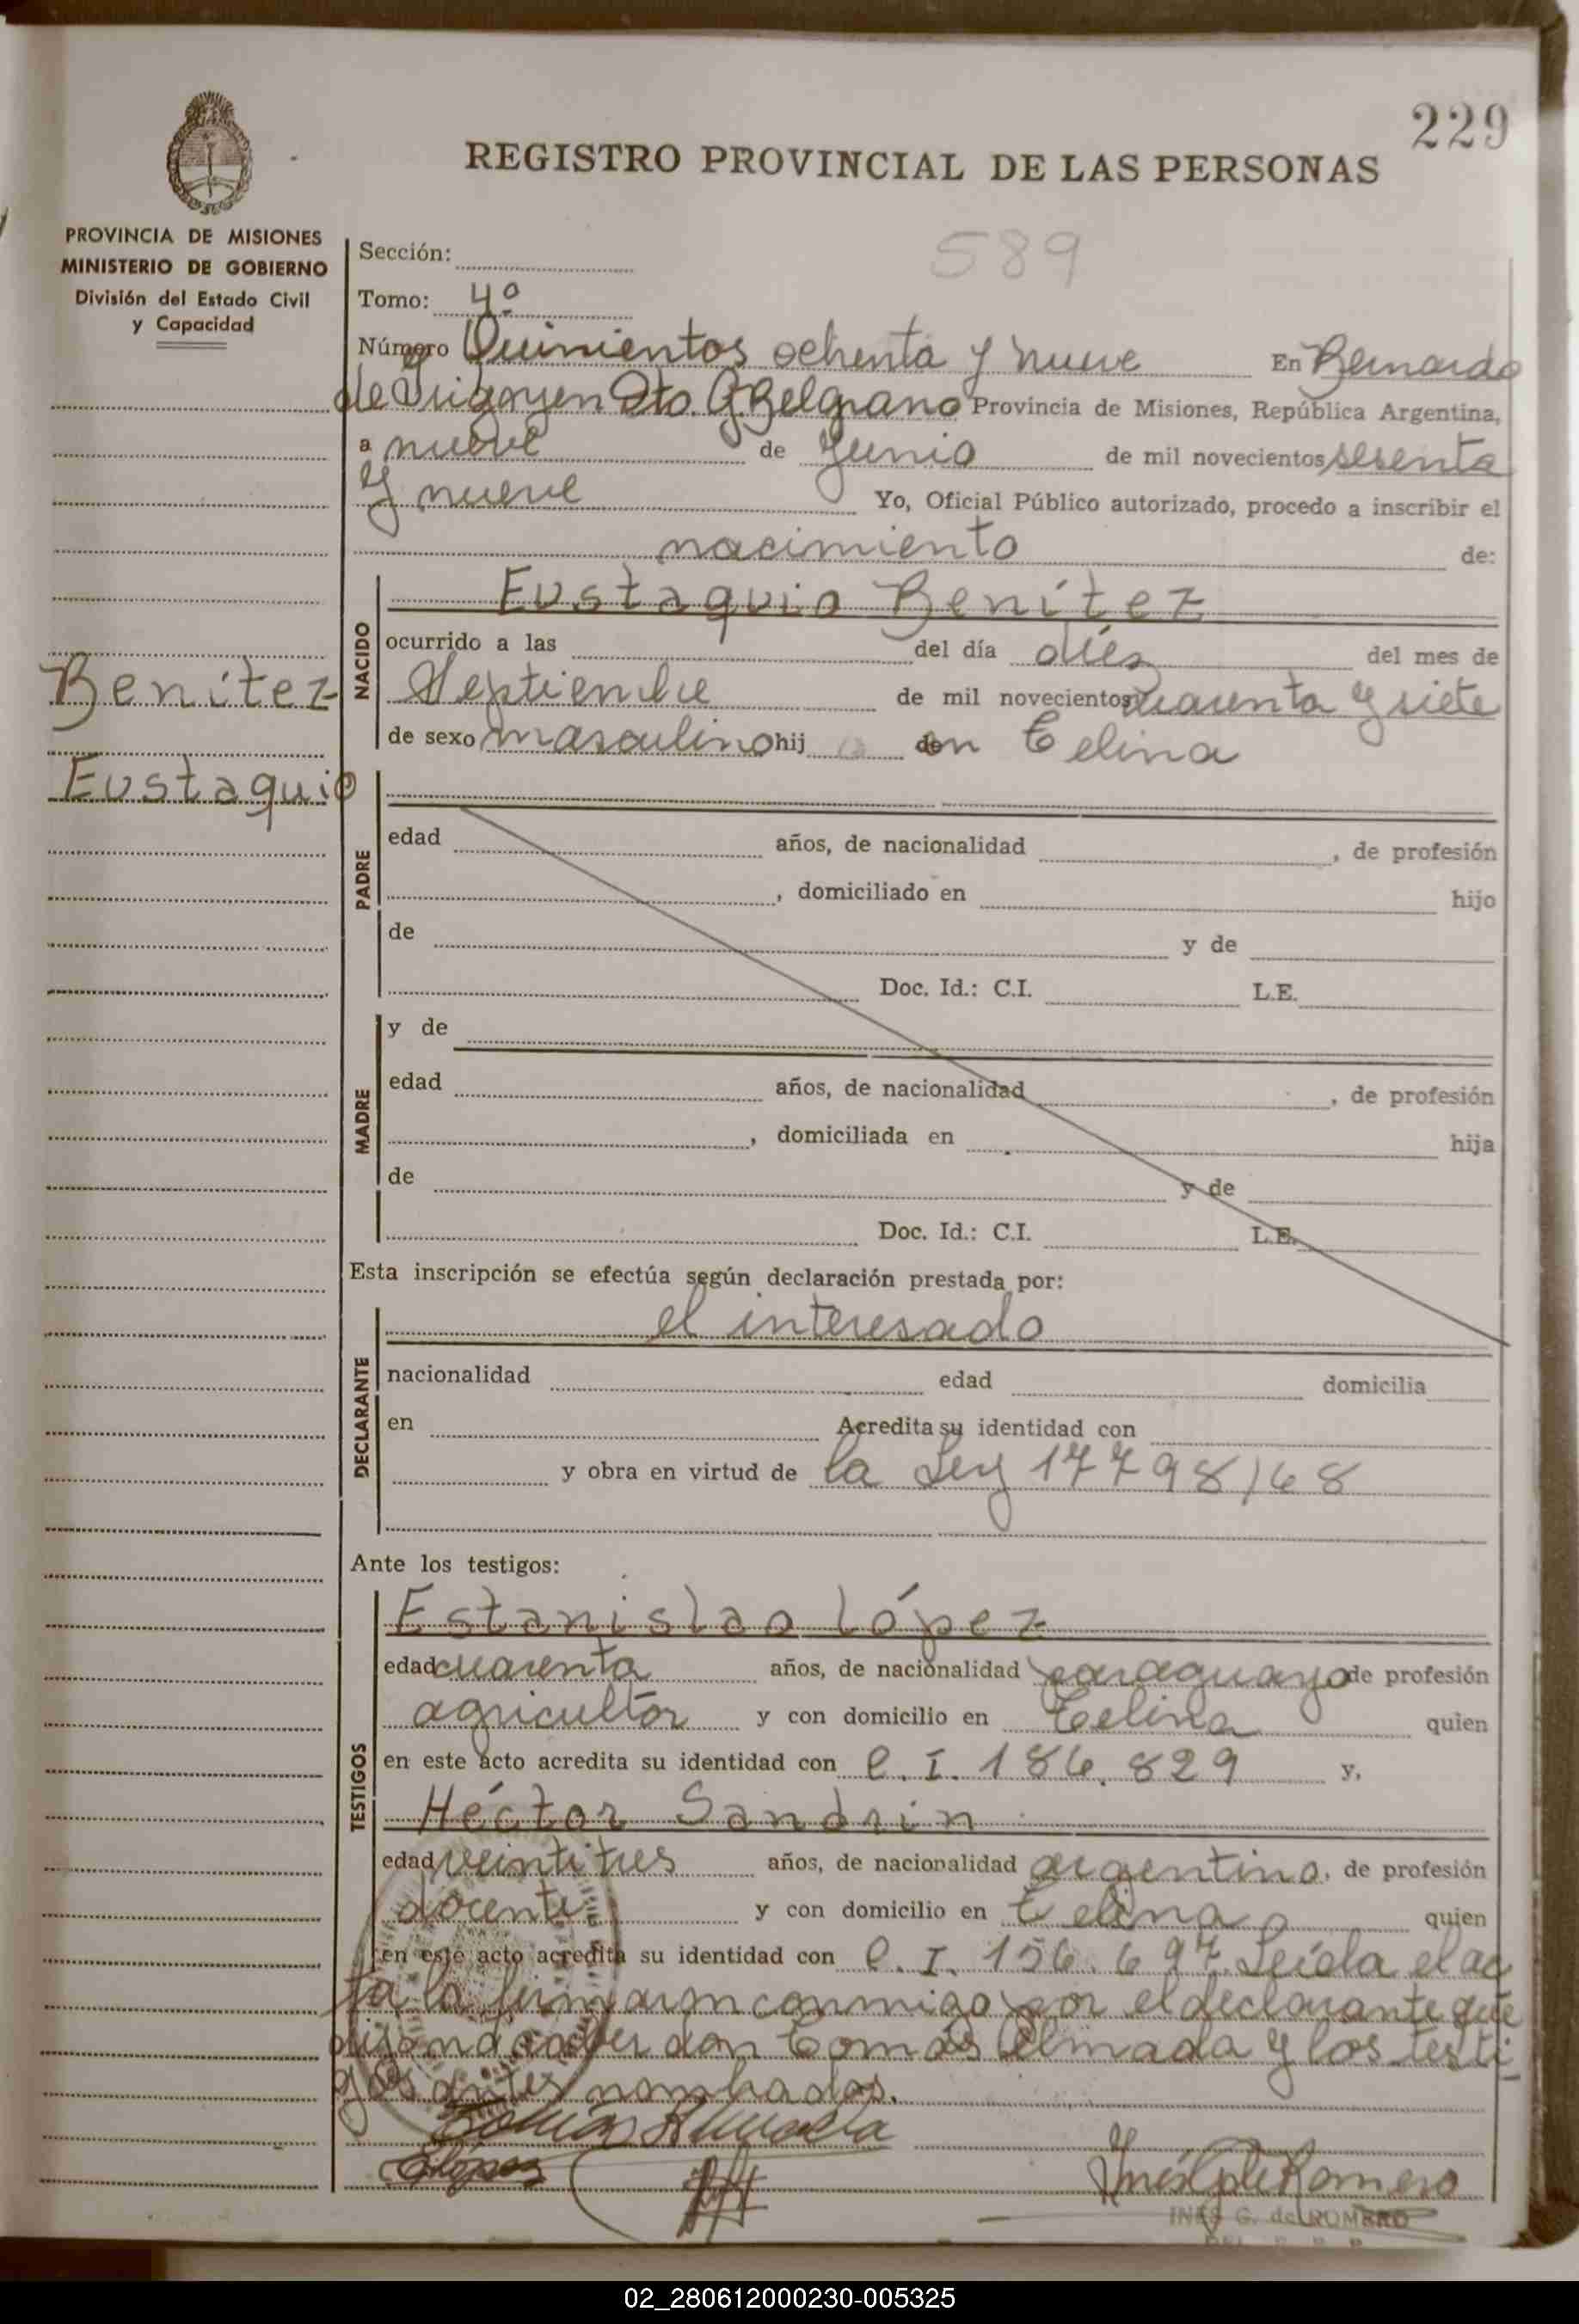 229
REGISTRO PROVINCIAL DE LAS PERSONAS
PROVINCIA DE MISIONES
MINISTERIO DE GOBIERNO
División del Estado Civil
y Capacidad
589
Sección:
Tomo: 4º
Número Quinientos ochenta y nueve En Bernardo
de Irigoyen Dto. G. Belgrano Provincia de Misiones, República Argentina,
a nueve de Junio de mil novecientos sesenta
y nueve Yo, Oficial Público autorizado, procedo a inscribir el
nacimiento de:
NACIDO
Eustaquio Benítez
ocurrido a las del día diés del mes de
Benítez
Septiembre de mil novecientos cuarenta y siete
de sexo masculino hij o en Celina
Eustaquio
PADRE
edad años, de nacionalidad , de profesión
, domiciliado en hijo
de y de
Doc. Id.: C.I. L.E.
MADRE
y de
edad años, de nacionalidad , de profesión
, domiciliada en hija
de y de
Doc. Id.: C.I. L.E.
Esta inscripción se efectúa según declaración prestada por:
DECLARANTE
el interesado
nacionalidad edad domicilia
en Acredita su identidad con
y obra en virtud de la Ley 17798/68
Ante los testigos:
TESTIGOS
Estanislao López
edad cuarenta años, de nacionalidad paraguayo de profesión
agricultor y con domicilio en Celina quien
en este acto acredita su identidad con C. I. 186.829 y,
Héctor Sandrin
edad veintitres años, de nacionalidad argentino, de profesión
docente y con domicilio en Celina quien
en este acto acredita su identidad con C. I. 156.697. Leída el ac
ta la firmaron conmigo por el declarante que
don Tomás Almada y los testi
gos antes nombrados.
Tomás Almada
López
Inés G. de Romero
INES G. de ROMERO
02_280612000230-005325